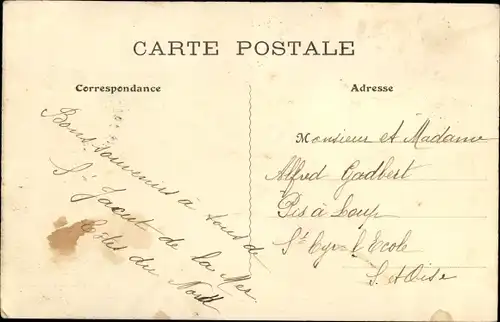 CARTE POSTALE
Correspondance
Bons souvenirs à tous de
St Jacut de la Mer
Côtes du Nord
Adresse
Monsieur et Madame
Alfred Gadbert
Pis à Loup
St Cyr l'Ecole
S. et Oise